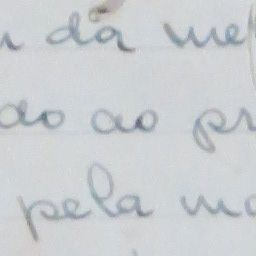 da me
do ao pr
pela mo